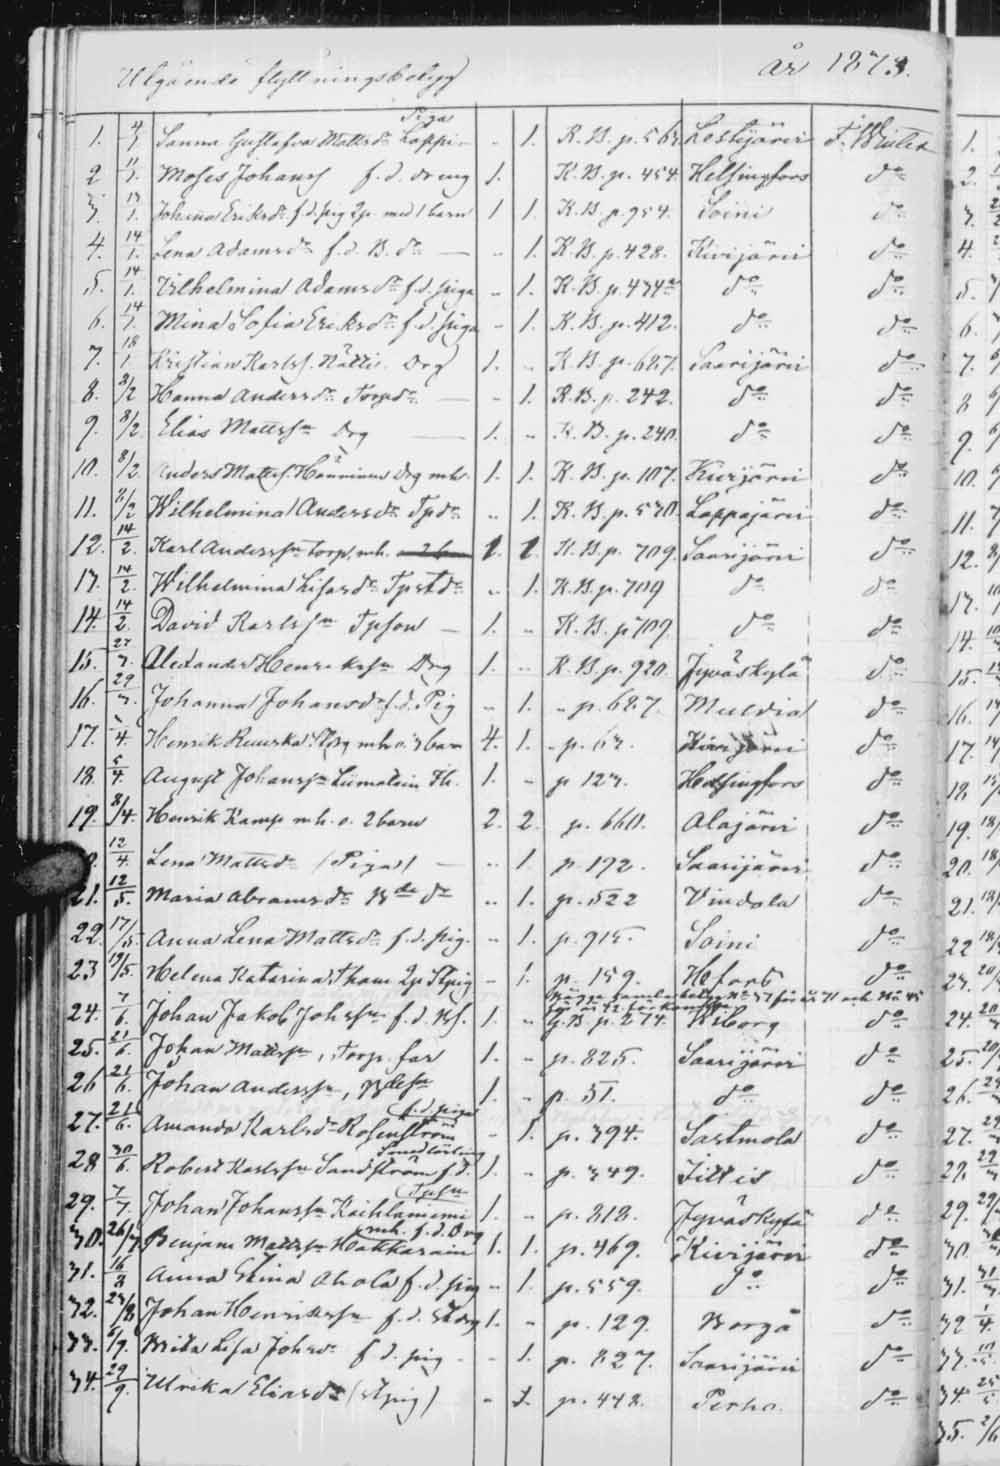 Utgående flyttningsbetyg år 1873.
1. 4/1 Sanna Gustafva Mattsdr Lappi Piga - 1. K.B. p. 563 Lestijärvi F. Wiita
2 11/1. Moses Johanss f.d. dreng 1. K.B. p. 454. Helsingfors do
3. 13/1. Johanna Eriksdr f.d. pig 2p med 1 barn 1 1 K.B. p. 954. Soini do
4. 14/1. Lena Adamsdr f.d. B. dr - 1. K.B. p. 428. Kivijärvi do
5. 14/1. Vilhelmina Adamsdr f.d. piga - 1. K.B. p. 434 do do
6. 14/1. Mina Sofia Eriksdr f.d. piga - 1. K.B. p. 412. do do
7. 18/1. Kristian Karlss. Drg 1. - K.B. p. 687. Saarijärvi do
8. 8/2 Hanna Andersdr Torpdr - 1. K.B. p. 242. do do
9. 8/2. Elias Mattssn Drg 1. - K.B. p. 240. do do
10. 8/2. Anders Mattss. Hänninen Drg mh. 1. 1. K.B. p. 107. Kivijärvi do
11. 8/2 Wilhelmina Andersdr Tpdr - 1. K.B. p. 570. Lappajärvi do
12. 14/2. Karl Anderssn torp. mh. 1. 1. K.B. p. 709. Saarijärvi do
13. 14/2. Wilhelmina Lisasdr Tpstdr - 1. K.B. p. 709 do do
14. 14/2. David Karlssn Tpson 1. - K.B. p 709. do do
15. 27/3. Alexander Henrikssn Drg 1. - K.B. p. 920. Jyväskylä do
16. 29/3. Johanna Johansdr f.d. Pig - 1. - p. 687. Multia do
17. 3/4. Henrik mh o. 3 barn 4. 1. - p. 63. Kivijärvi do
18. 5/4. August Johanssn Liimatain 1. - p 123. Helsingfors do
19. 8/4. Henrik Kamp mh. o. 2 barn 2. 2. p. 660. Alajärvi do
12/4. Lena Mattsdr (Piga) - 1. p. 192. Saarijärvi do
21. 12/5. Maria Abramsdr Bde dr - 1. p. 522 Vindala do
22. 17/5. Anna Lena Mattsdr f.d. pig. - 1. p. 915. Soini do
23 19/5. Helena Katarina Stpig - 1. p. 159. do
24. 7/6. Johan Jakob Johssn f.d. Bs. 1. - p. 274. Wiborg do
25. 21/6. Johan Mattssn, Torp. far 1. - p. 825. Saarijärvi do
26 21/6. Johan Anderssn, Bdesn 1. - p. 51. do do
27. 21/6. Amanda Karlsdr Rosenström f.d. piga - 1. p. 394. Sastmola do
28 30/6. Robert Karlssn Sandström f.d. 1. - p. 349. do
29. 7/7. Johan Johanssn Keihlaniemi Tpsn 1. - p. 818. Jyväskylä do
30. 26/7 Benjam Mattssn Hakkarain mh. f.d. Drg 1. 1. p. 469. Kivijärvi do
31. 16/8 Anna Stina Ahola f.d. pig - 1. p. 559. do do
32. 23/8 Johan Henrikssn f.d. 1. - p. 129. Borgå do
33. 6/9. Brita Lisa Johsdr f.d. pig - 1. p. 827. Saarijärvi do
34. 29/9 Ulrika Eliasdr (Stpig) - 1. p. 448. Perho. do